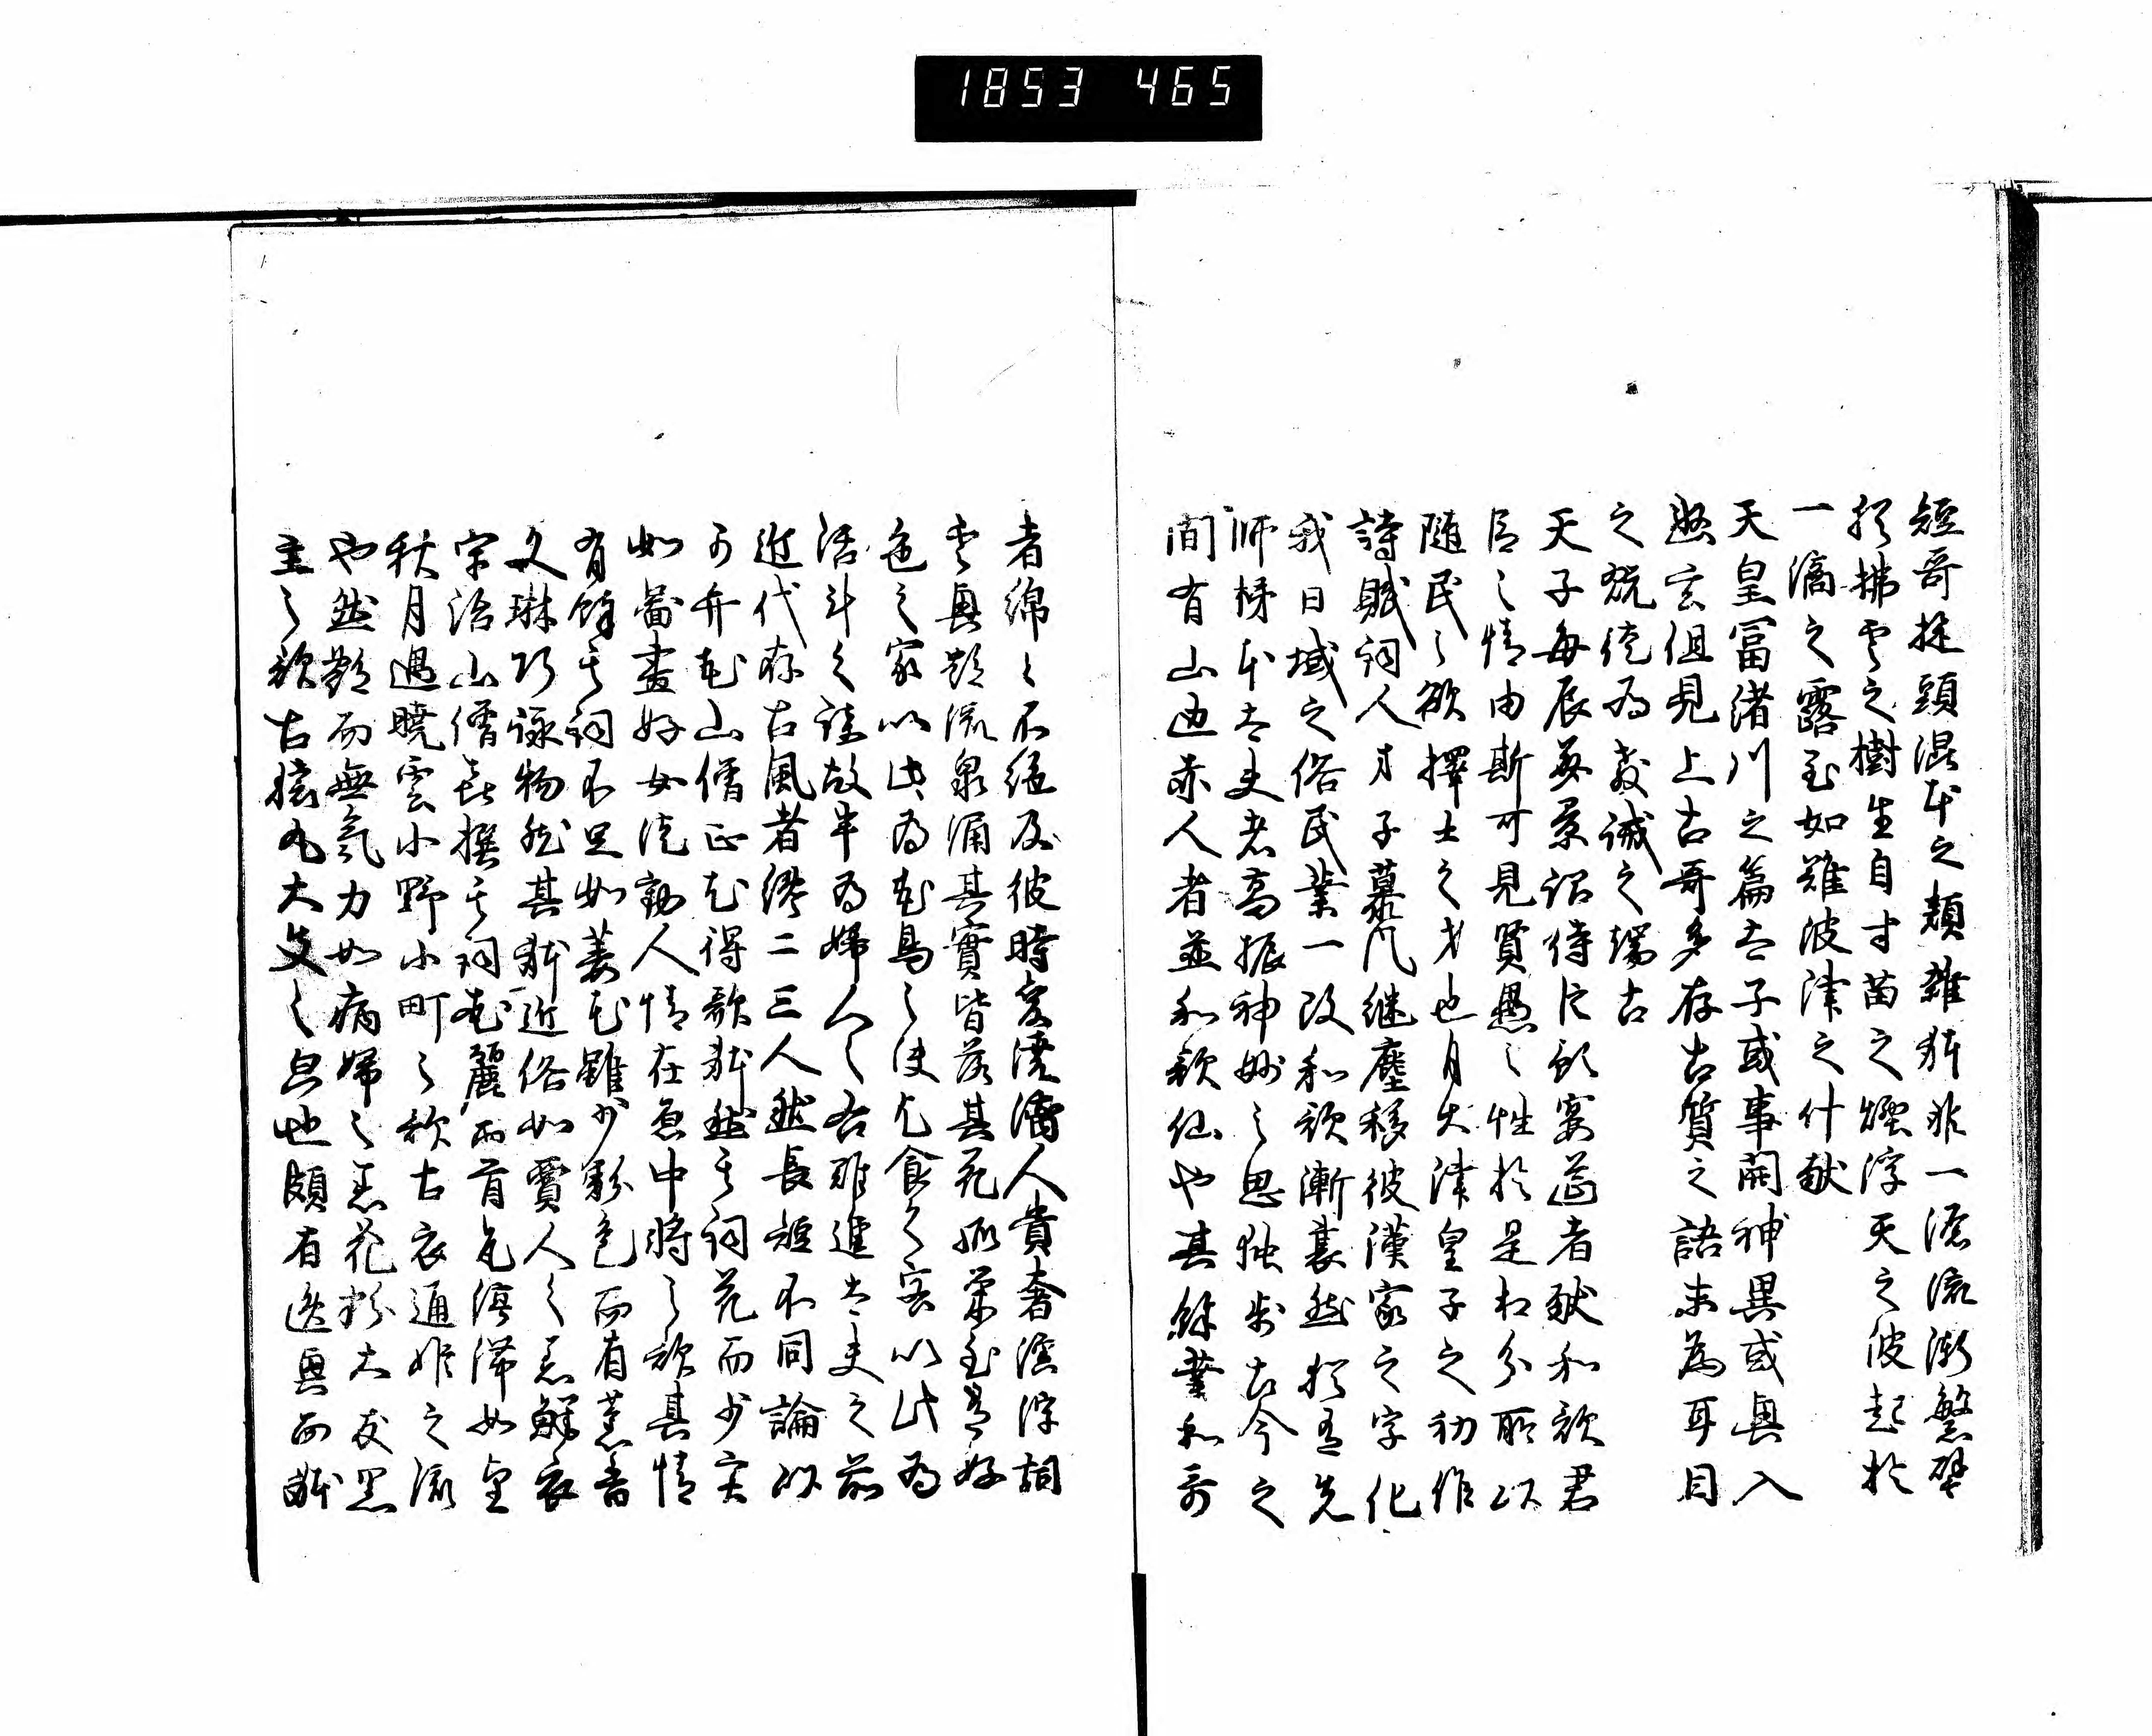 1853 465
短哥旋頭混本之類雑躰非一源流漸繁譬
猶拂雲之樹生自寸苗之煙浮天之波起於
一滴之露至如難波津之什献
天皇冨渚川之篇太子或事関神異或興入
幽玄但見上古哥多存古質之語未為耳目
之翫徒為教誡之端古
天子毎良辰美景詔侍臣預宴莚者献和歌君
臣之情由斯可見賢愚之性於是相分所以
随民之欲擇士之才也自大津皇子之初作
詩賦詞人才子慕風継塵移彼漢家之字化
我日域之俗民業一改和歌漸衰然猶有先
師柿本大夫者高振神妙之思独歩古今之
間有山邊赤人者並和歌仙也其餘業和哥
者綿々不絶及彼時変澆漓人貴奢淫浮詞
雲興艶流泉涌其實皆落其花孤栄至有好
色之家以此為花鳥之使乞食之客以此為
活計之謀故半為婦人之右難進大夫之前
近代存古風者纔二三人然長短不同論以
可弁花山僧正尤得歌躰然其詞花而少実
如圖畫好女徒動人情在原中将之歌其情
有餘其詞不足如萎花雖少彩色而有薫香
文琳巧詠物然其躰近俗如賈人之着鮮衣
宇治山僧喜撰其詞花麗而首尾停滞如望
秋月遇曉雲小野小町之歌古衣通姫之流
也然艶而無氣力如病婦之着花粉大友黒
主之歌古猿丸大夫之次也頗有逸興而躰